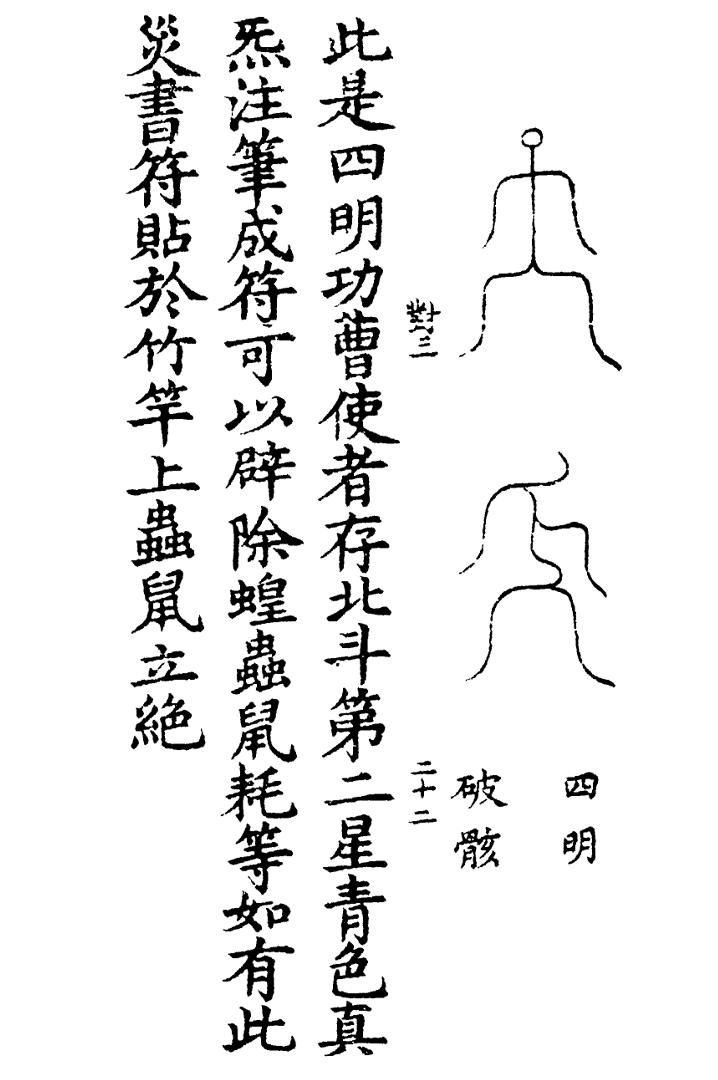 四明
破骸
對三
二十二
此是四明功曹使者存北斗第二星青色真
炁注筆成符可以辟除蝗蟲鼠耗等如有此
災書符貼於竹竿上蟲鼠立絕